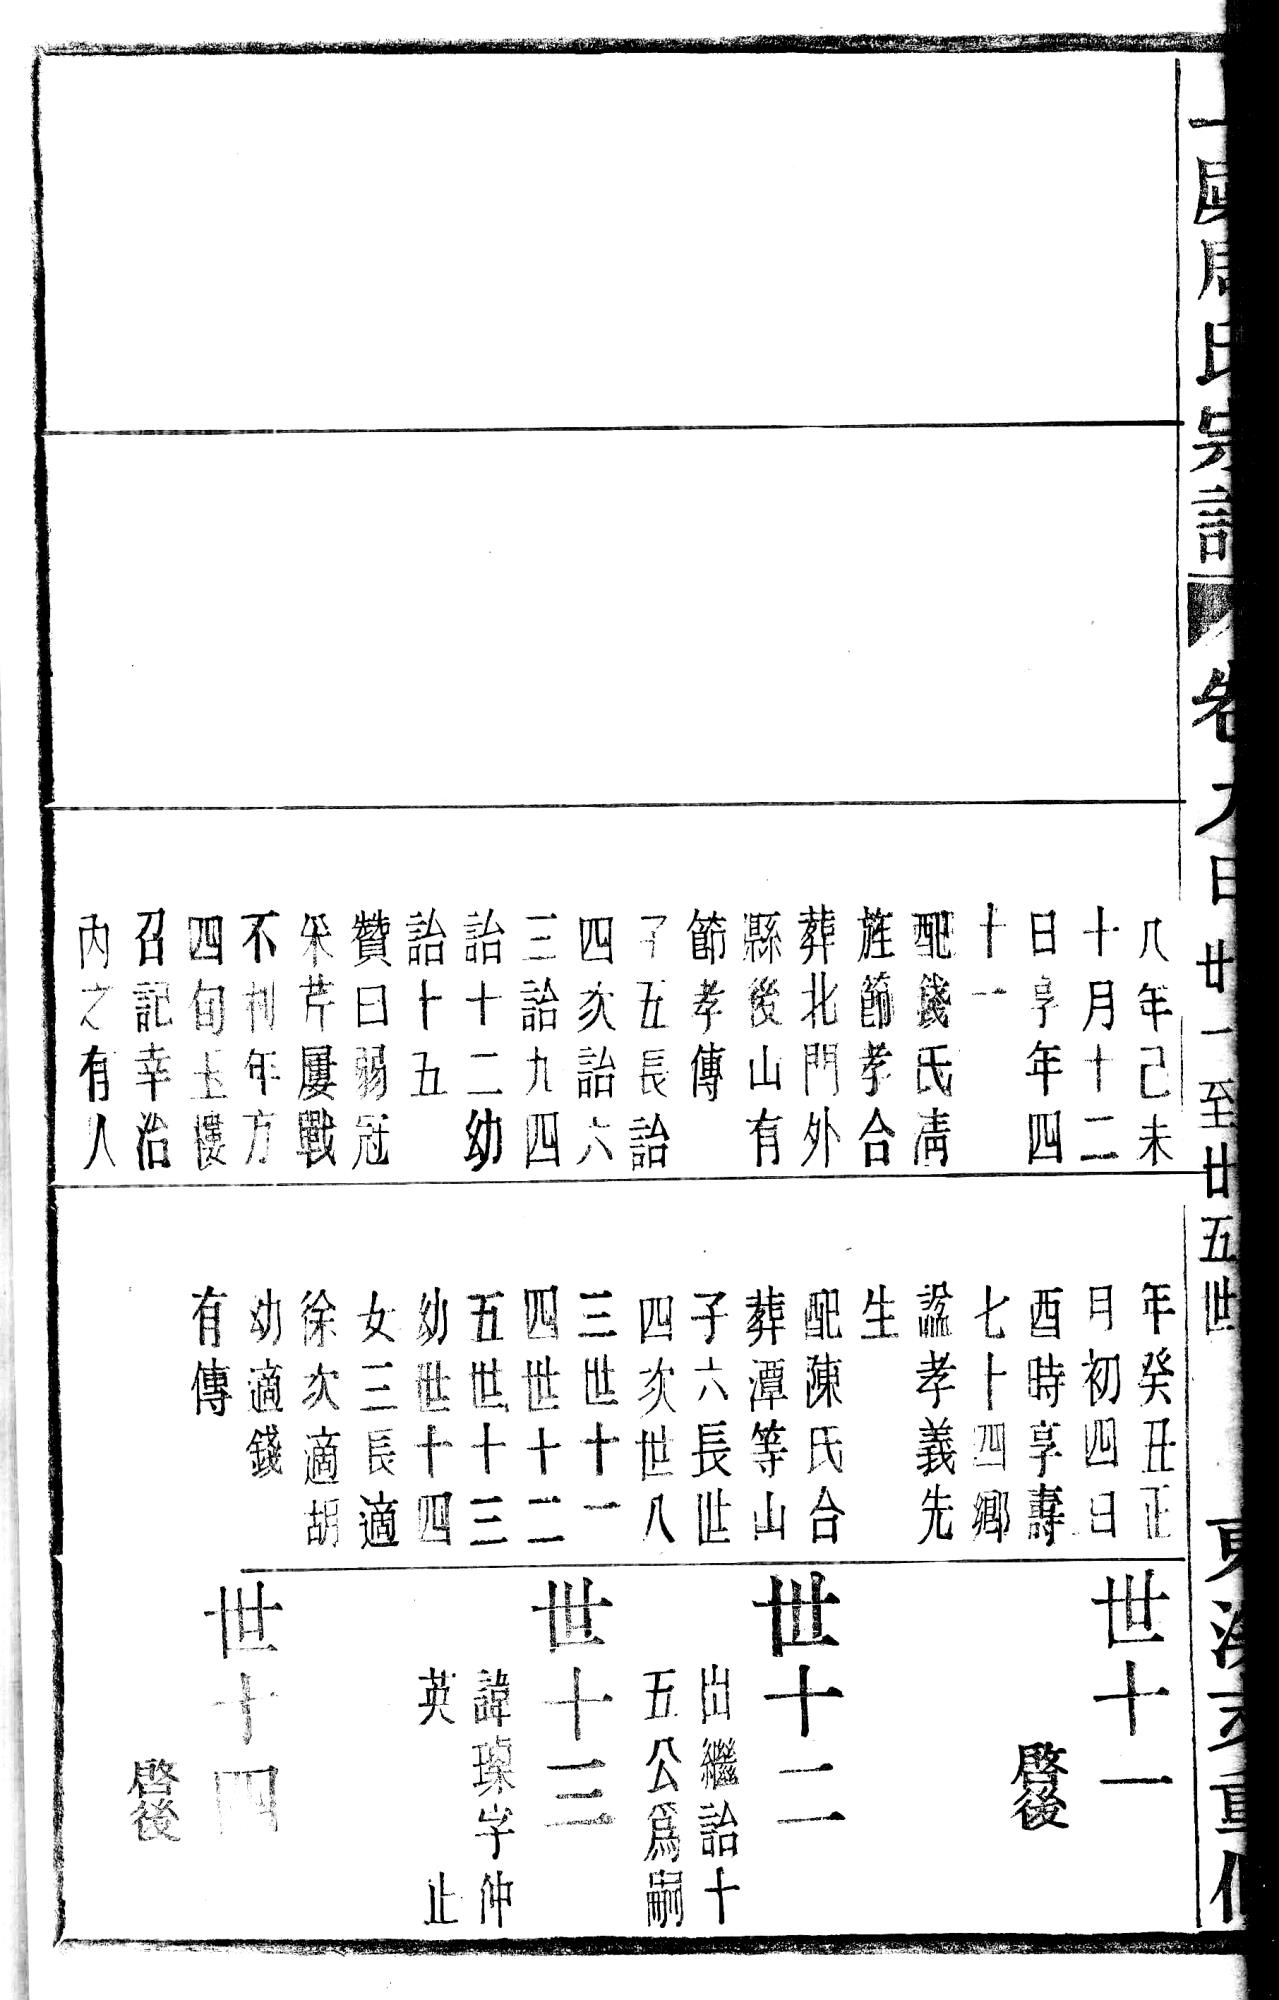 周氏宗譜
卷九
廿一至廿五世
重修
八年己未
十月十二
日享年四
十一
配錢氏淸
旌節孝合
葬北門外
縣後山有
節孝傳
子五長詒
四次詒六
三詒九四
詒十二幼
詒十五
贊曰弱冠
采芹屢戰
不利年方
四旬玉樓
召記幸治
內之有人
年癸丑正
月初四日
酉時享壽
七十四鄉
諡孝義先
生
配陳氏合
葬潭等山
子六長世
四次世八
三世十一
四世十二
五世十三
幼世十四
女三長適
徐次適胡
幼適錢
有傳
世十一
啓後
世十二
出繼詒十
五公爲嗣
世十三
諱璪字仲
英 止
世十四
啓後